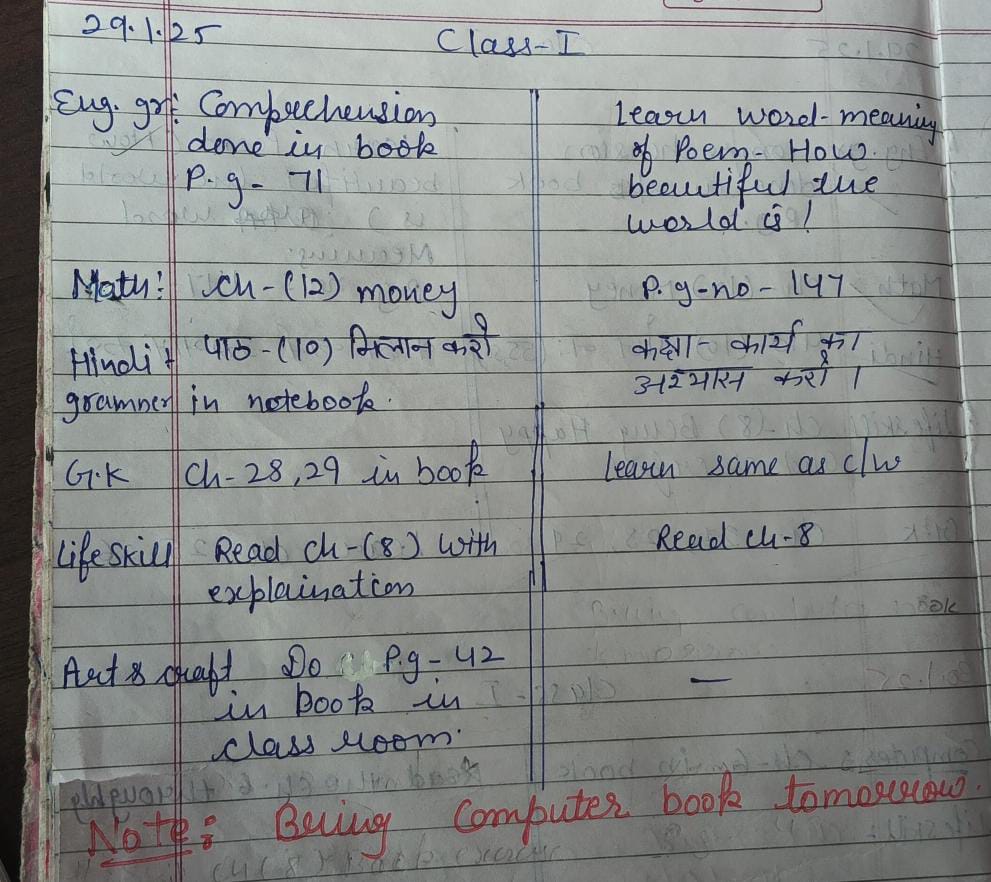 29.1.25
Class-I
Eng. gr: Comprechension
done in book
P.g- 71
Learn word-meaning
of Poem- How
beautiful the
world is!
Math: Ch-(12) money
P.g-no-147
Hindi: पाठ-(10) मिलान करो
grammer in notebook.
कक्षा-कार्य का
अभ्यास करो ।
G.K Ch-28,29 in book
Learn same as c/w
Life Skill Read ch-(8) with
explaination
Read ch-8
Art & craft Do P.g-42
in book in
class room.
—
Note: Bring Computer book tomorrow.